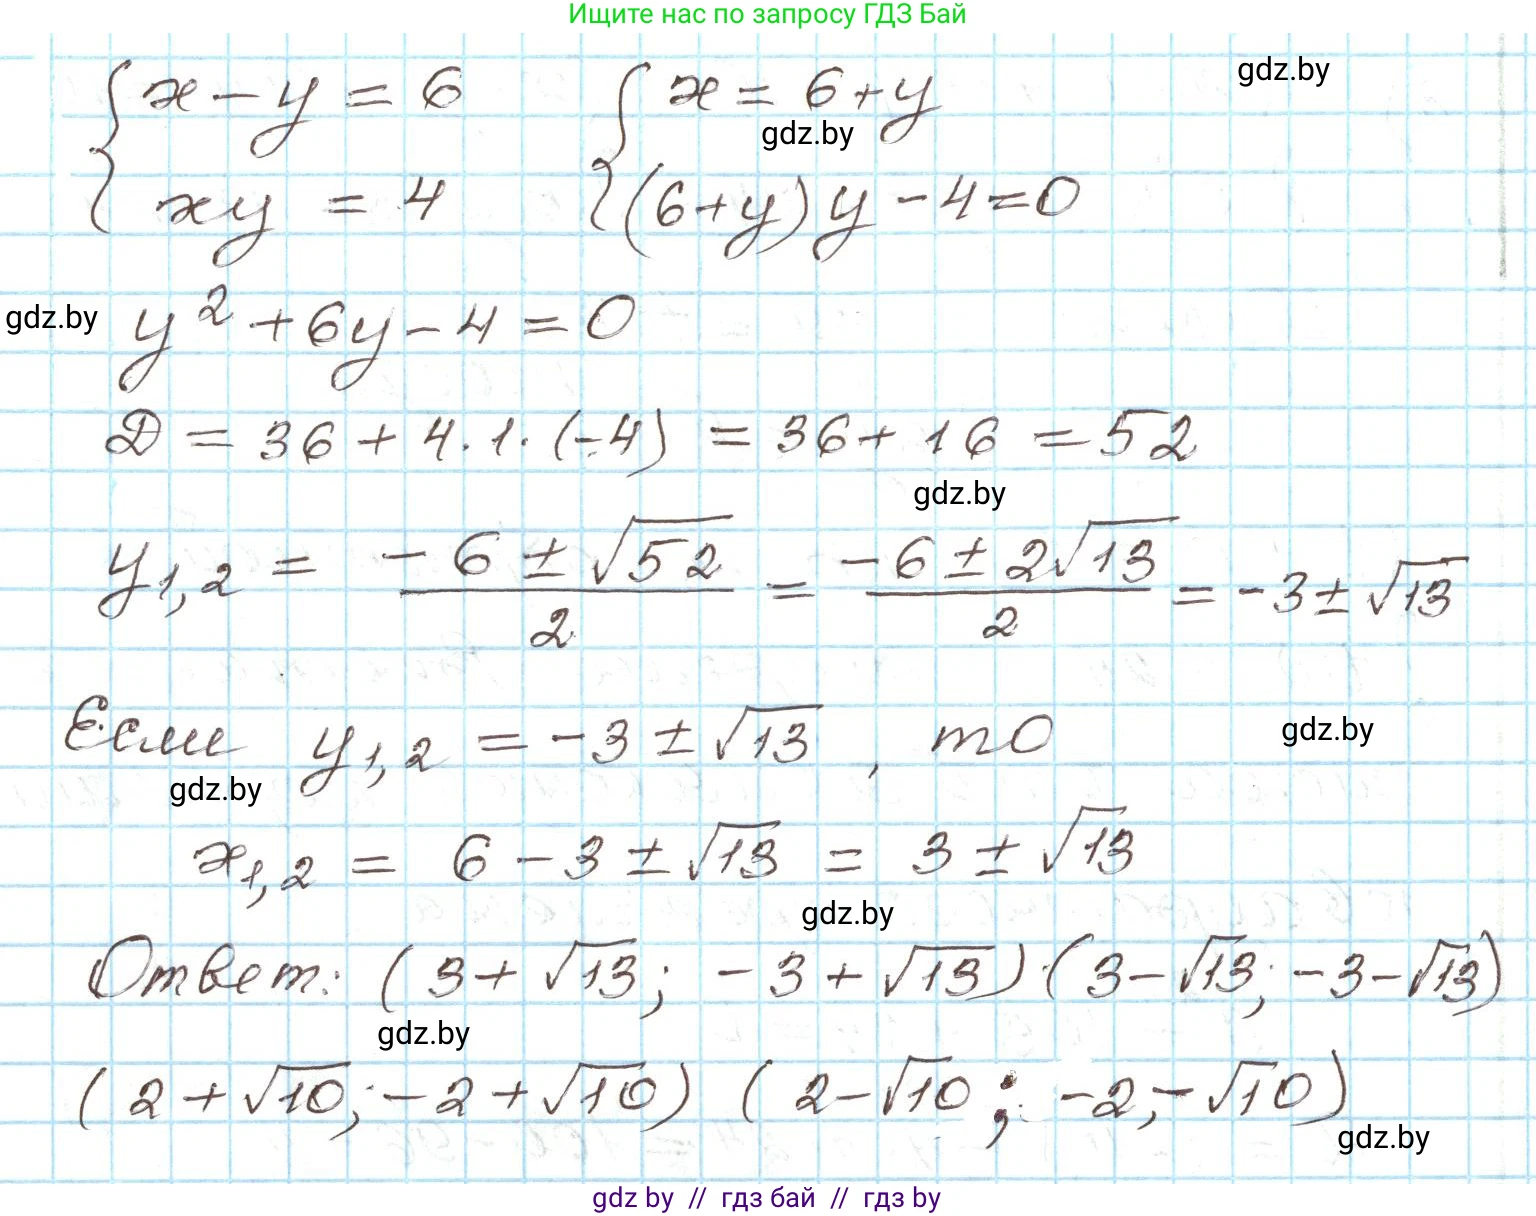 Ищите нас по запросу ГДЗ Бай
gdz.by
{ x - y = 6 { x = 6 + y
gdz.by
xy = 4 (6+y) y - 4 = 0
gdz.by
y² + 6y - 4 = 0
D = 36 + 4 · 1 · (-4) = 36 + 16 = 52
gdz.by
y1,2 = (-6 ± √52)/2 = (-6 ± 2√13)/2 = -3 ± √13
Если y1,2 = -3 ± √13 , то
gdz.by
gdz.by
x1,2 = 6 - 3 ± √13 = 3 ± √13
gdz.by
Ответ: (3 + √13; -3 + √13) (3 - √13; -3 - √13)
gdz.by
(2 + √10; -2 + √10) (2 - √10; -2 - √10)
gdz.by
gdz by // гдз бай // гдз by